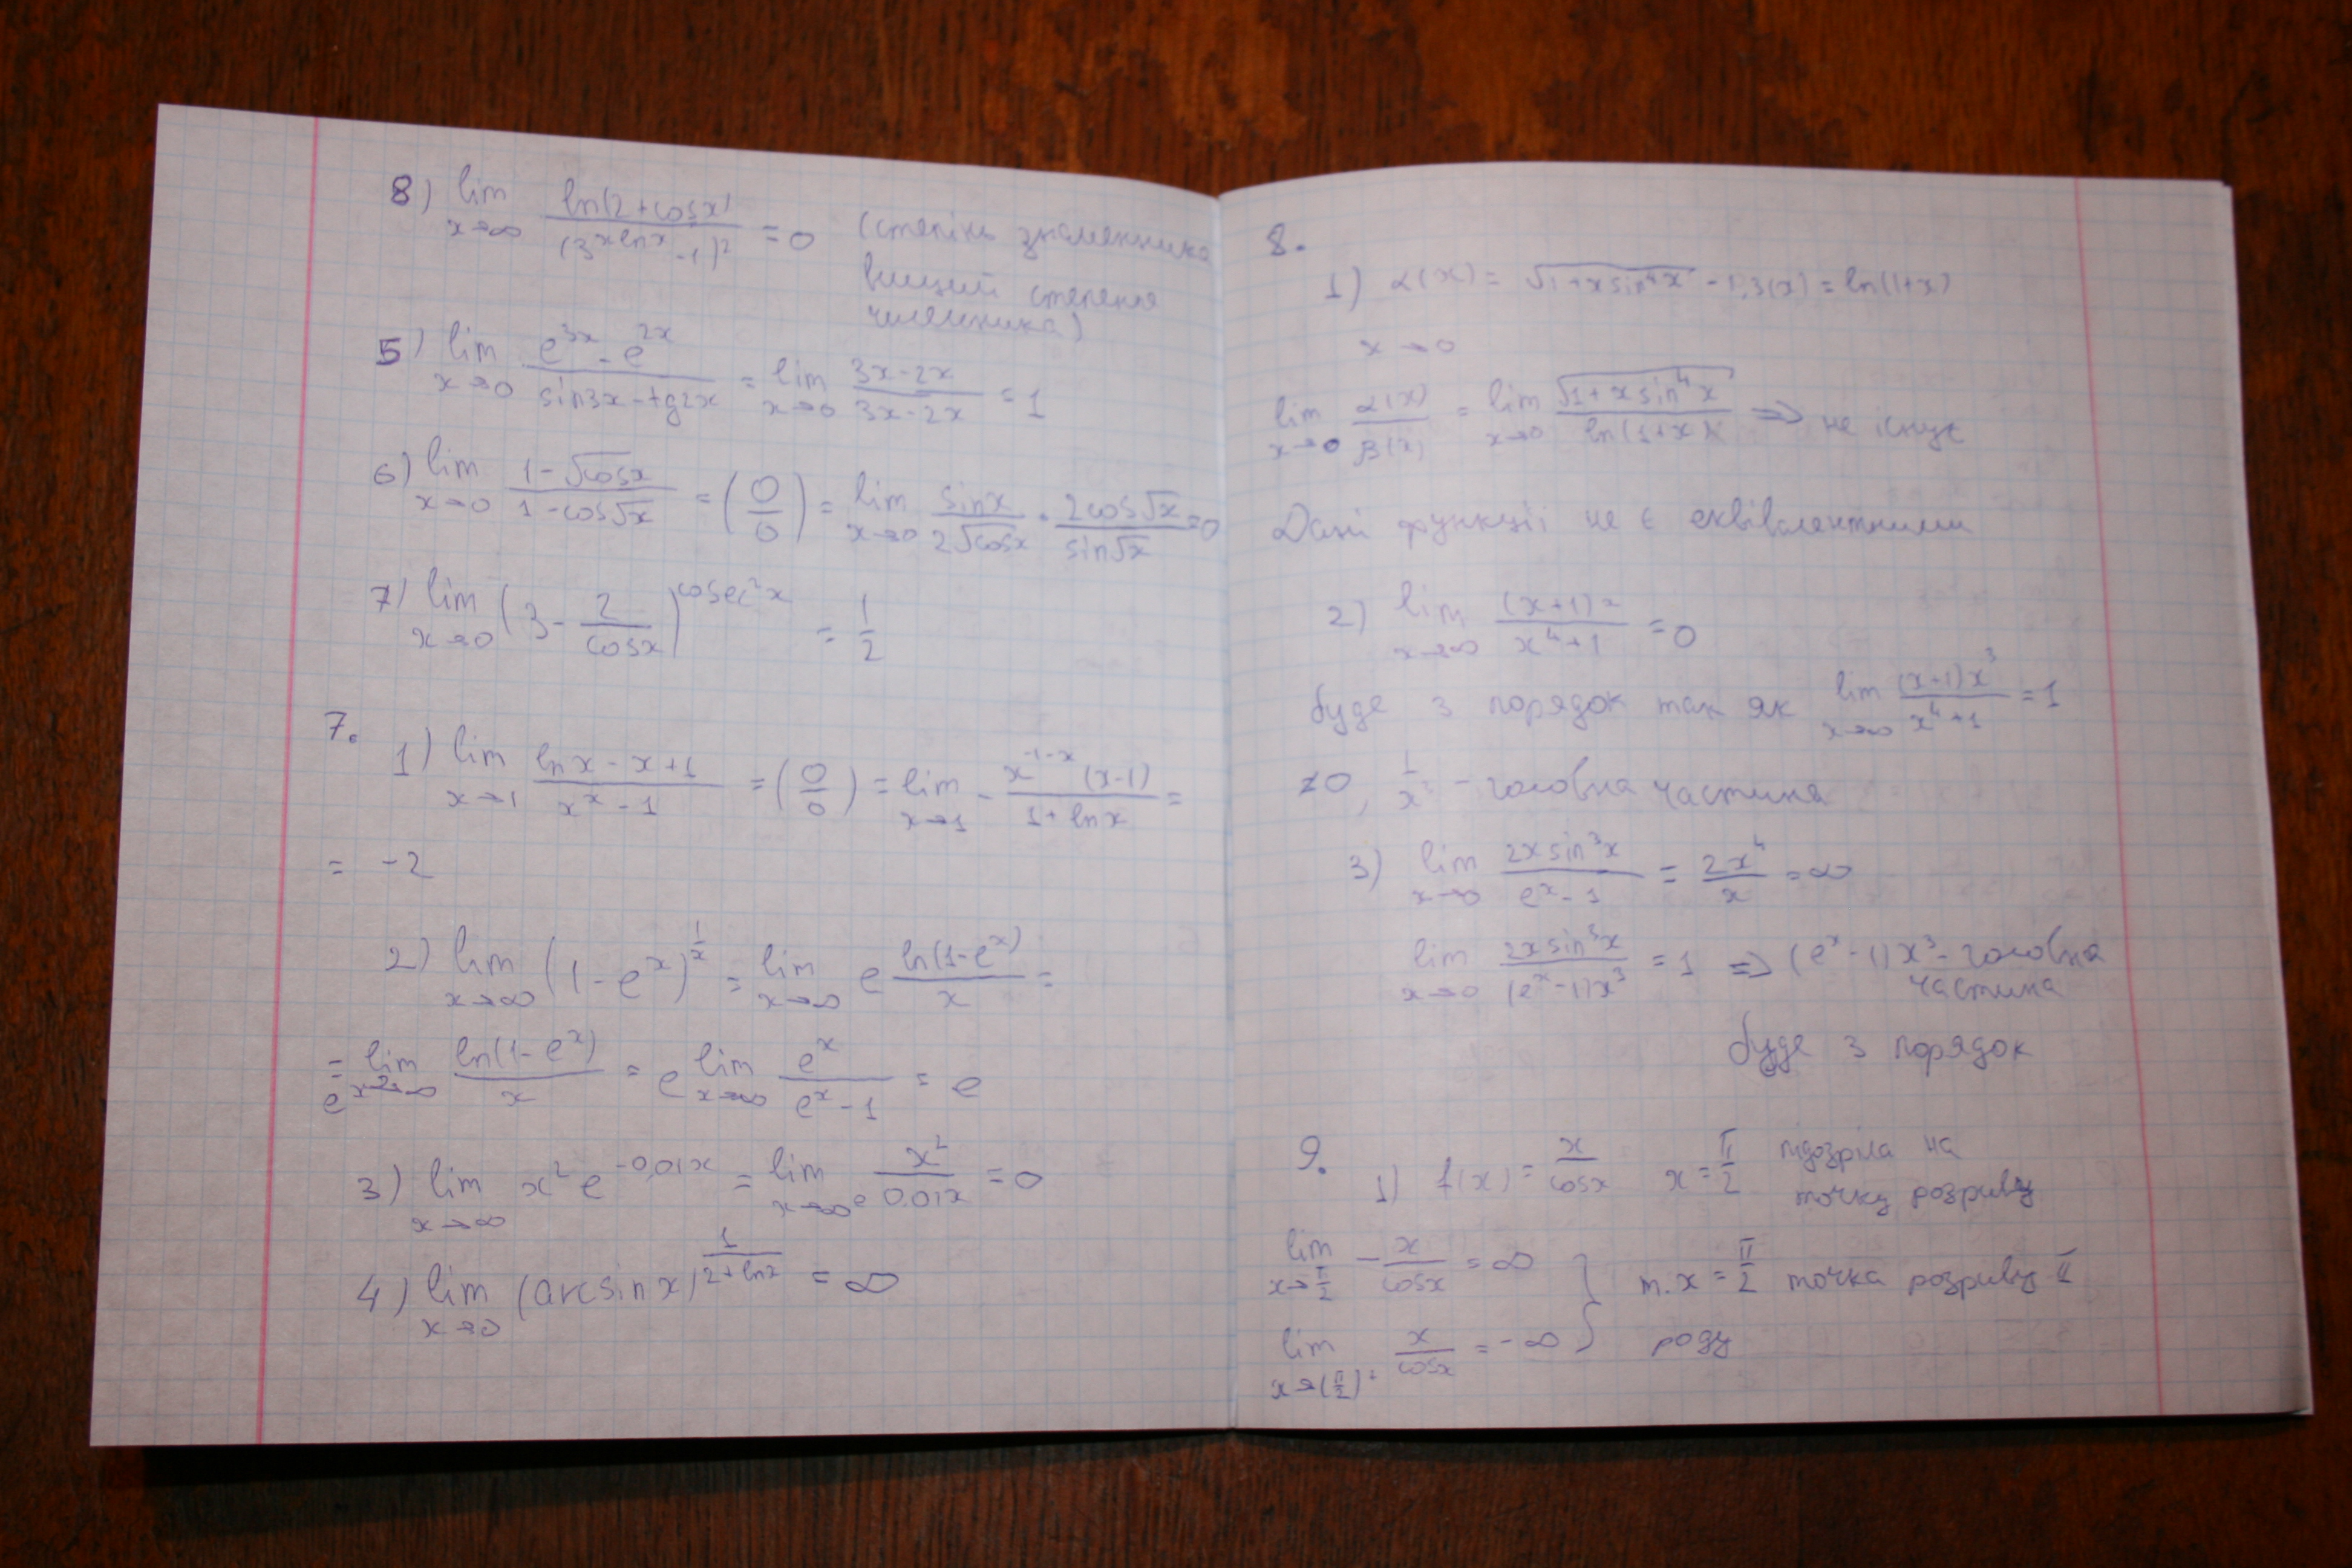 8) lim x→∞ ln(2+cosx) / (3^(xlnx) -1)² = 0 (степінь знаменника
вищий степеня
чисельника)
5) lim x→0 (e^3x - e^2x) / (sin3x - tg2x) = lim x→0 (3x-2x) / (3x-2x) = 1
6) lim x→0 (1-√cosx) / (1-cos√x) = (0/0) = lim x→0 sinx / 2√cosx · 2cos√x / sin√x = 0
7) lim x→0 (3 - 2/cosx)^(cosec²x) = 1/2
7.
1) lim x→1 (lnx - x+1) / (x^x - 1) = (0/0) = lim x→1 - x^(-1-x) (x-1) / (1+lnx) =
= -2
2) lim x→∞ (1-e^x)^(1/x) = lim x→∞ e ln(1-e^x) / x =
= e^lim x→∞ ln(1-e^x) / x = e lim x→∞ e^x / (e^x - 1) = e
3) lim x→∞ x² e^(-0,01x) = lim x→∞ x² / e^0,01x = 0
4) lim x→0 (arcsinx)^(1/(2+lnx)) = ∞
8.
1) α(x) = √(1+xsin⁴x) - 1, β(x) = ln(1+x)
x→0
lim x→0 α(x)/β(x) = lim x→0 √(1+xsin⁴x) / ln(1+x) => не існує
Дані функції не є еквівалентними
2) lim x→∞ (x+1) / (x⁴+1) = 0
буде 3 порядок так як lim x→∞ (x+1)x³ / (x⁴+1) = 1
≠0, 1/x³ - головна частина
3) lim x→0 2xsin³x / (e^x - 1) = 2x⁴/x = ∞
lim x→0 2xsin³x / (e^x-1)x³ = 1 => (e^x-1)x³ - головна
частина
буде 3 порядок
9.
1) f(x) = x/cosx x = π/2 підозріла на
точку розриву
lim x→π/2 - x/cosx = ∞
т. x = π/2 точка розриву II
lim x→(π/2)+ x/cosx = -∞
роду